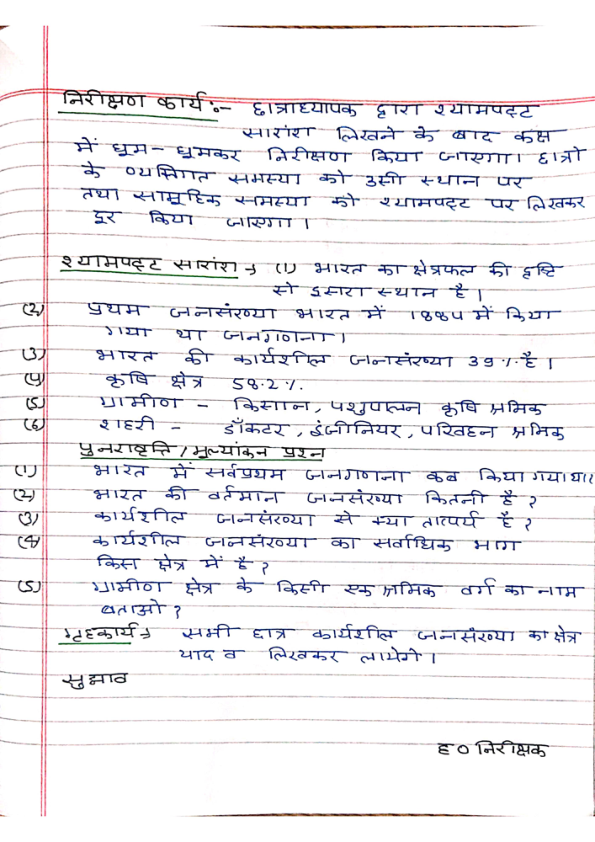 निरीक्षण कार्य :- छात्राध्यापक द्वारा श्यामपट्ट
सारांश लिखने के बाद कक्ष
में घूम - घूमकर निरीक्षण किया जाएगा। छात्रो
के व्यक्तिगत समस्या को उसी स्थान पर
तथा सामूहिक समस्या को श्यामपट्ट पर लिखकर
दूर किया जाएगा ।
श्यामपट्ट सारांश → (1) भारत का क्षेत्रफल की दृष्टि
से दूसरा स्थान है ।
(2) प्रथम जनसंख्या भारत में 1884 में किया
गया था जनगणना ।
(3) भारत की कार्यशील जनसंख्या 39 % है ।
(4) कृषि क्षेत्र 58.2 %
(5) ग्रामीण - किसान , पशुपालन कृषि श्रमिक
(6) शहरी - डॉक्टर , इंजीनियर , परिवहन श्रमिक
पुनरावृत्ति / मूल्यांकन प्रश्न
(1) भारत में सर्वप्रथम जनगणना कब किया गया था।
(2) भारत की वर्तमान जनसंख्या कितनी है ?
(3) कार्यशील जनसंख्या से क्या तात्पर्य है ?
(4) कार्यशील जनसंख्या का सर्वाधिक भाग
किस क्षेत्र में है ?
(5) ग्रामीण क्षेत्र के किसी एक श्रमिक वर्ग का नाम
बताओ ?
गृहकार्य → सभी छात्र कार्यशील जनसंख्या का क्षेत्र
याद व लिखकर लायेगे ।
सुझाव
ह० निरीक्षक